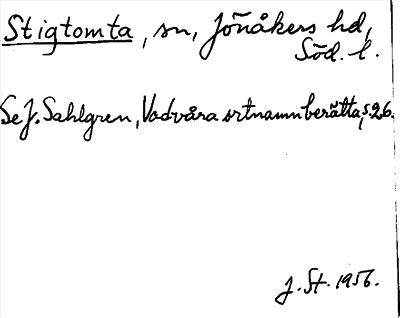 Stigtomta, sn, Jönåkers hd,
Söd. l.
Se J. Sahlgren, Vad våra ortnamn berätta, s. 26.
J. St. 1956.